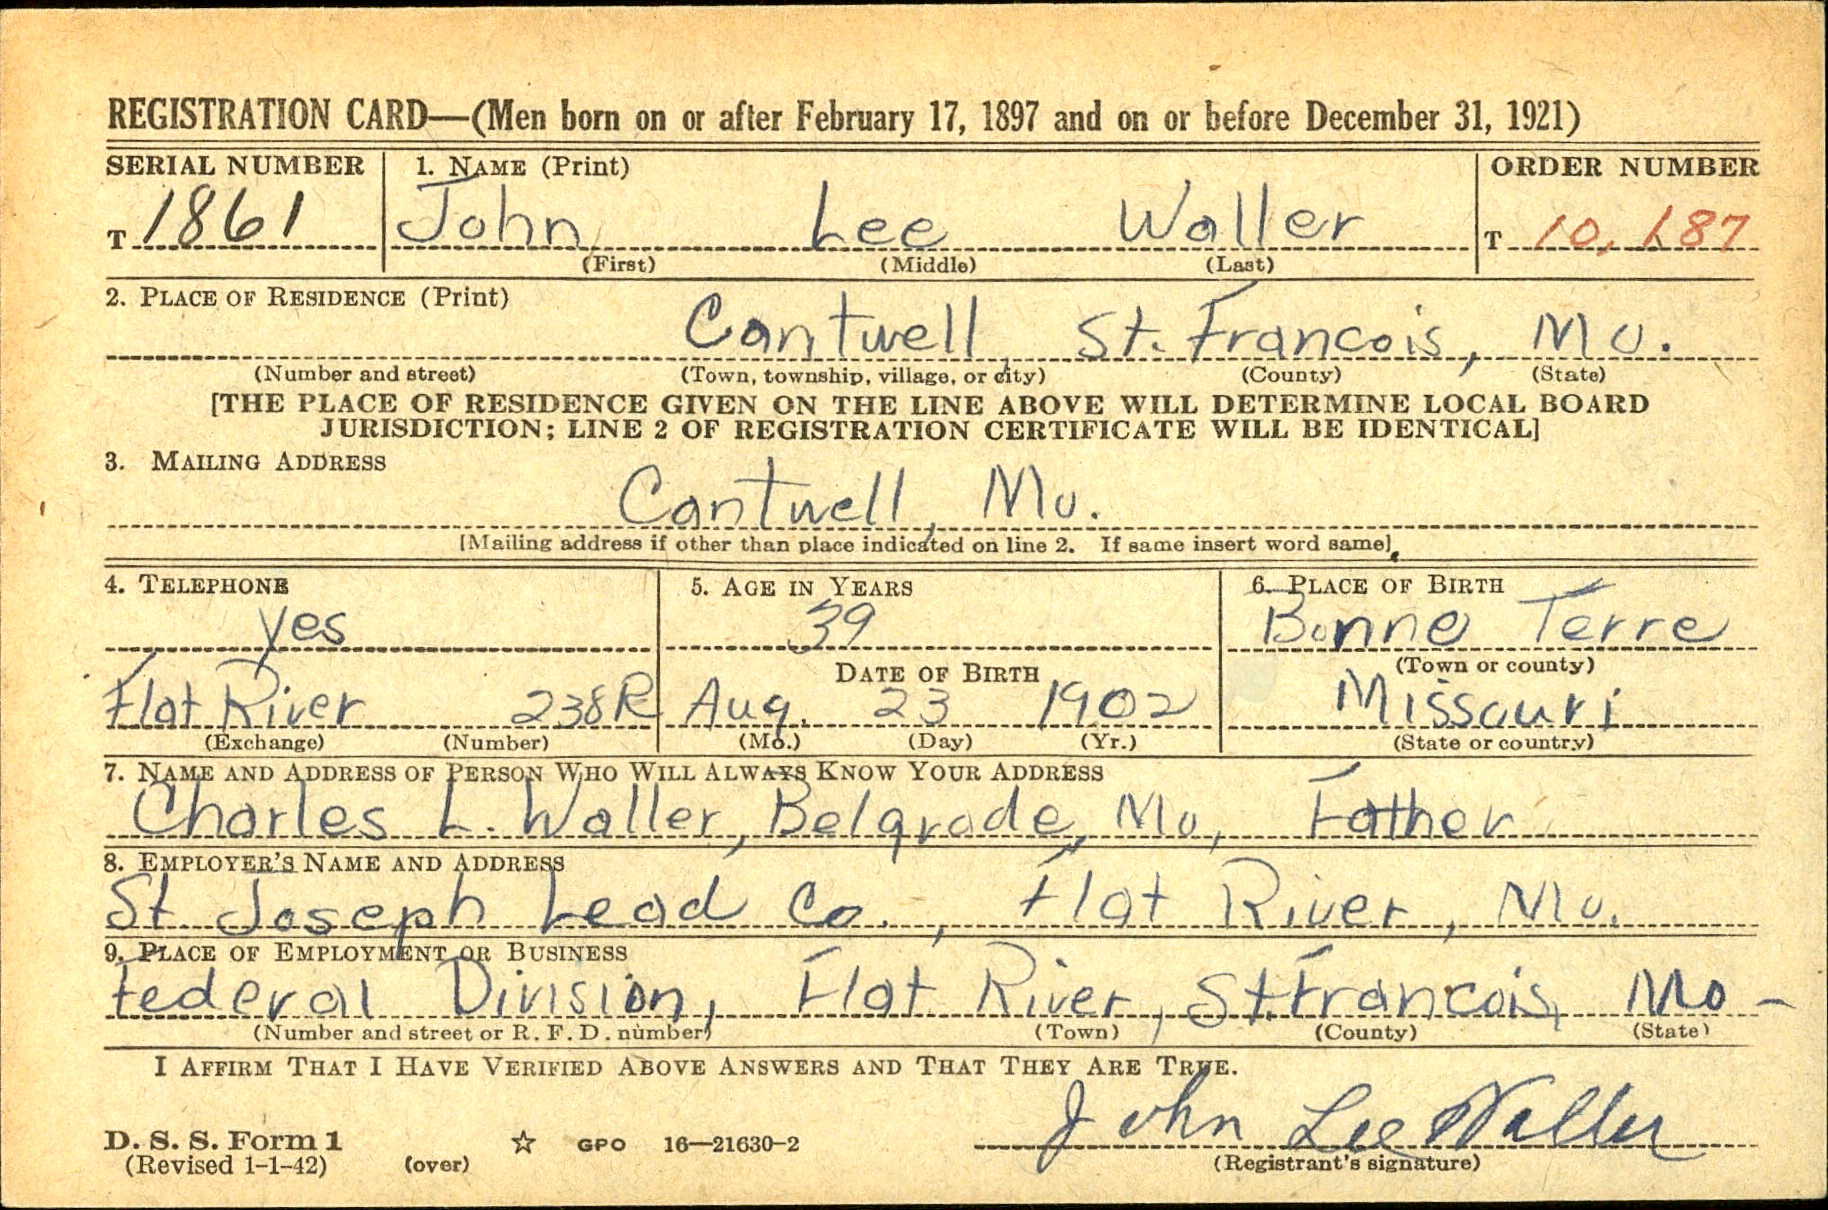 REGISTRATION CARD—(Men born on or after February 17, 1897 and on or before December 31, 1921)
SERIAL NUMBER 1. NAME (Print) ORDER NUMBER
T 1861 John Lee Waller T 10,187
(First) (Middle) (Last)
2. PLACE OF RESIDENCE (Print)
Cantwell, St. Francois, Mo.
(Number and street) (Town, township, village, or city) (County) (State)
[THE PLACE OF RESIDENCE GIVEN ON THE LINE ABOVE WILL DETERMINE LOCAL BOARD
JURISDICTION; LINE 2 OF REGISTRATION CERTIFICATE WILL BE IDENTICAL]
3. MAILING ADDRESS
Cantwell, Mo.
[Mailing address if other than place indicated on line 2. If same insert word same]
4. TELEPHONE 5. AGE IN YEARS 6. PLACE OF BIRTH
Yes 39 Bonne Terre
DATE OF BIRTH (Town or county)
Flat River 238R Aug. 23 1902 Missouri
(Exchange) (Number) (Mo.) (Day) (Yr.) (State or country)
7. NAME AND ADDRESS OF PERSON WHO WILL ALWAYS KNOW YOUR ADDRESS
Charles L. Waller, Belgrade, Mo, Father
8. EMPLOYER'S NAME AND ADDRESS
St Joseph Lead Co., Flat River, Mo.
9. PLACE OF EMPLOYMENT OR BUSINESS
Federal Division, Flat River, St. Francois, Mo-
(Number and street or R. F. D. number) (Town) (County) (State)
I AFFIRM THAT I HAVE VERIFIED ABOVE ANSWERS AND THAT THEY ARE TRUE.
John Lee Waller
D. S. S. Form 1 ☆ GPO 16—21630-2
(Revised 1-1-42) (over) (Registrant's signature)